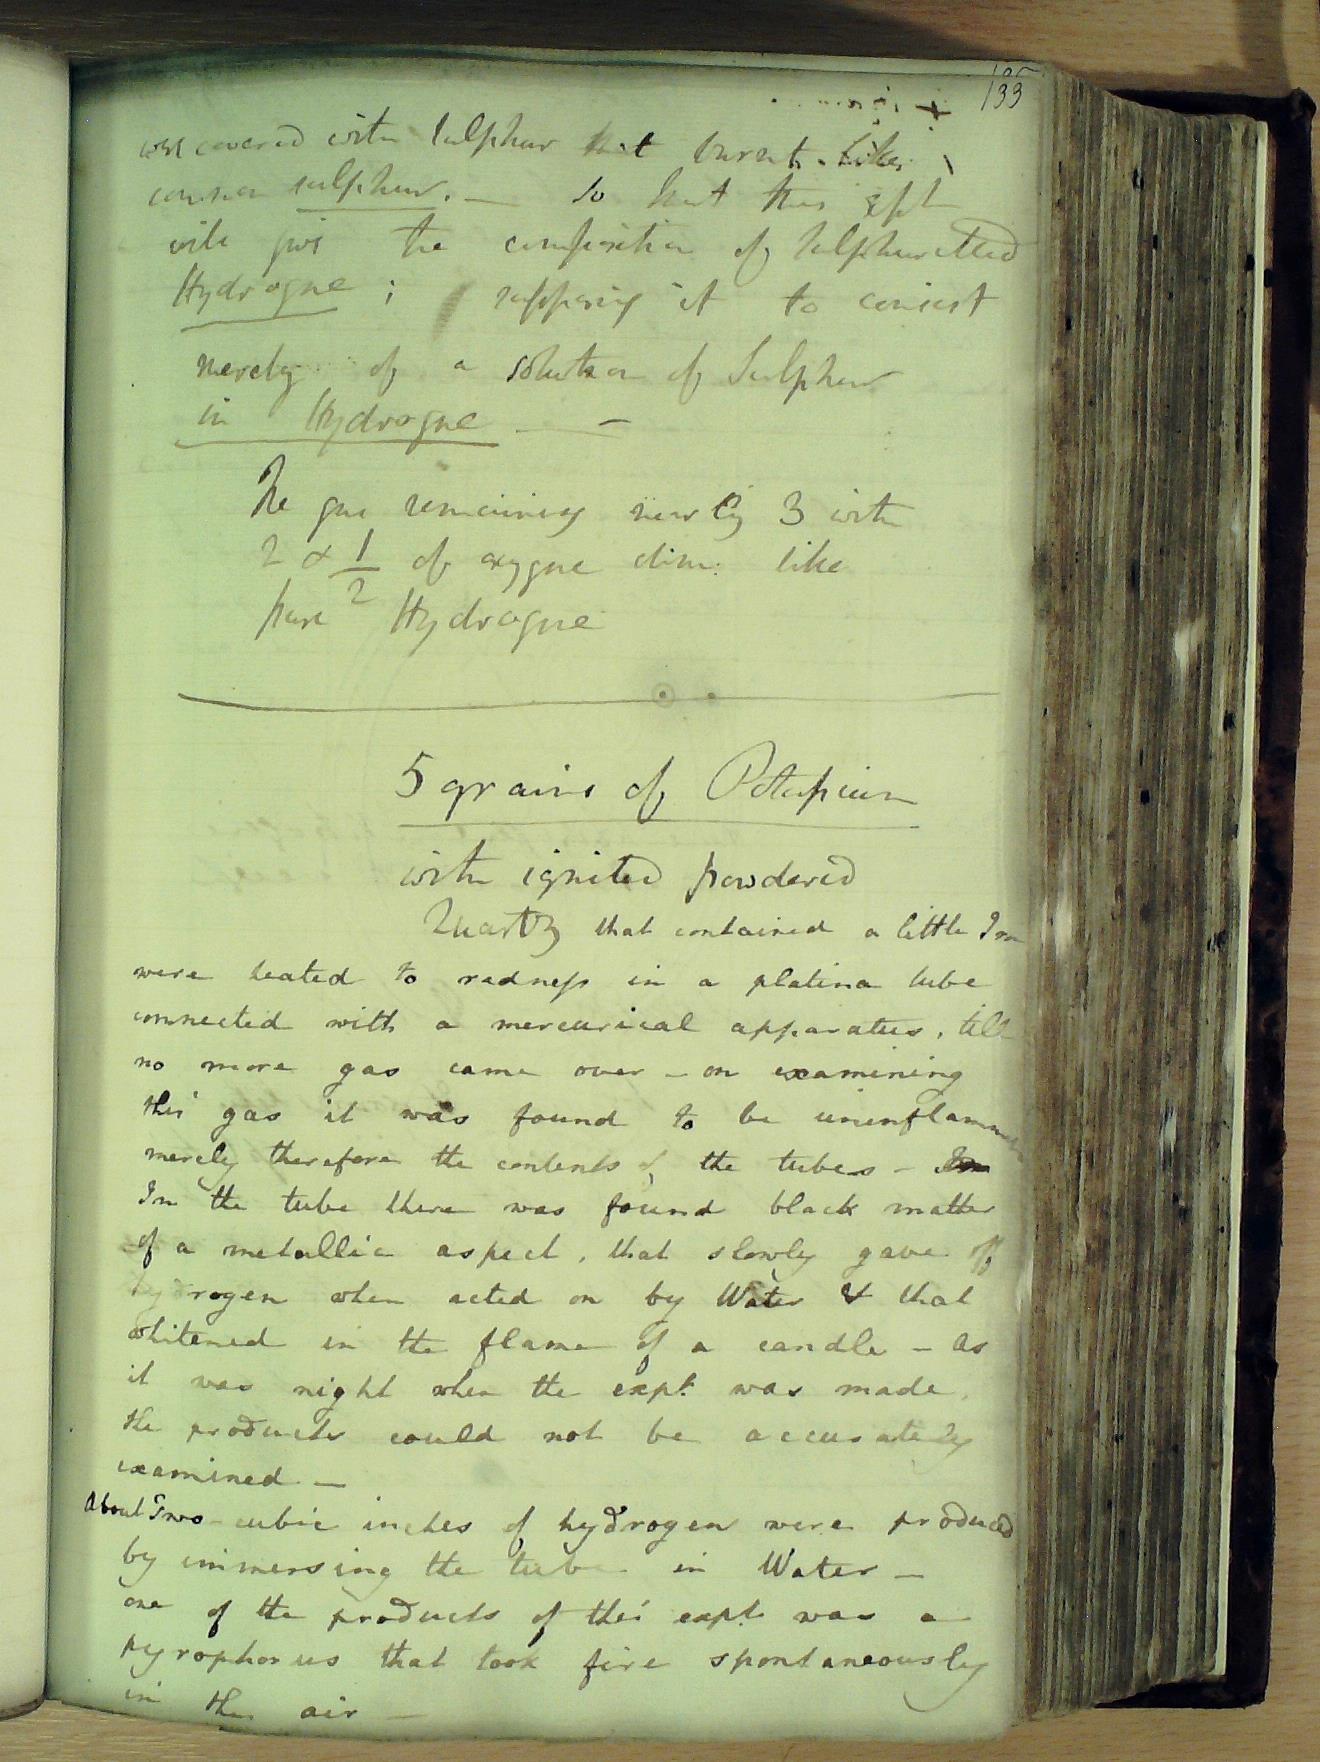 133
was covered with sulphur that burnt like
common sulphur. — So that this expt
will give the composition of Sulphuretted
Hydrogne ; supposing it to consist
merely of a solution of Sulphur
in Hydrogne —
The gas remaining nearly 3 with
2 & 1/2 of oxygne dim: like
pure Hydrogne
5 grains of Potassium
with ignited powdered
Quartz that contained a little Iron
were heated to redness in a platina tube
connected with a mercurical apparatus, till
no more gas came over – on examining
this gas it was found to be uninflammable
merely therefore the contents of the tubes –
In the tube there was found black matter
of a metallic aspect, that slowly gave off
hydrogen when acted on by Water & that
whitened in the flame of a candle – As
it was night when the expt. was made,
the products could not be accurately
examined —
About Two cubic inches of hydrogen were produced
by immersing the tube in Water –
one of the products of this expt. was a
pyrophorus that took fire spontaneously
in the air –